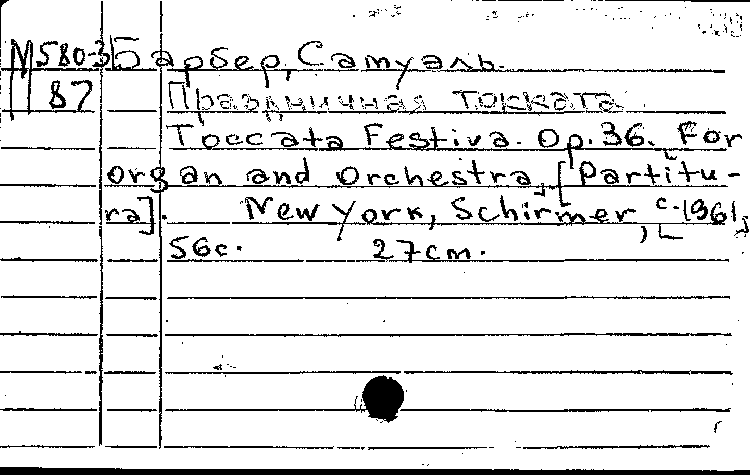 М580-3 Барбер, Самуэль.
П 87 Праздничная токката
Toccata Festiva. Op. 36. For
organ and Orchestra. [Partitu-
ra]. New York, Schirmer, c. 1961,
56с. 27cm.